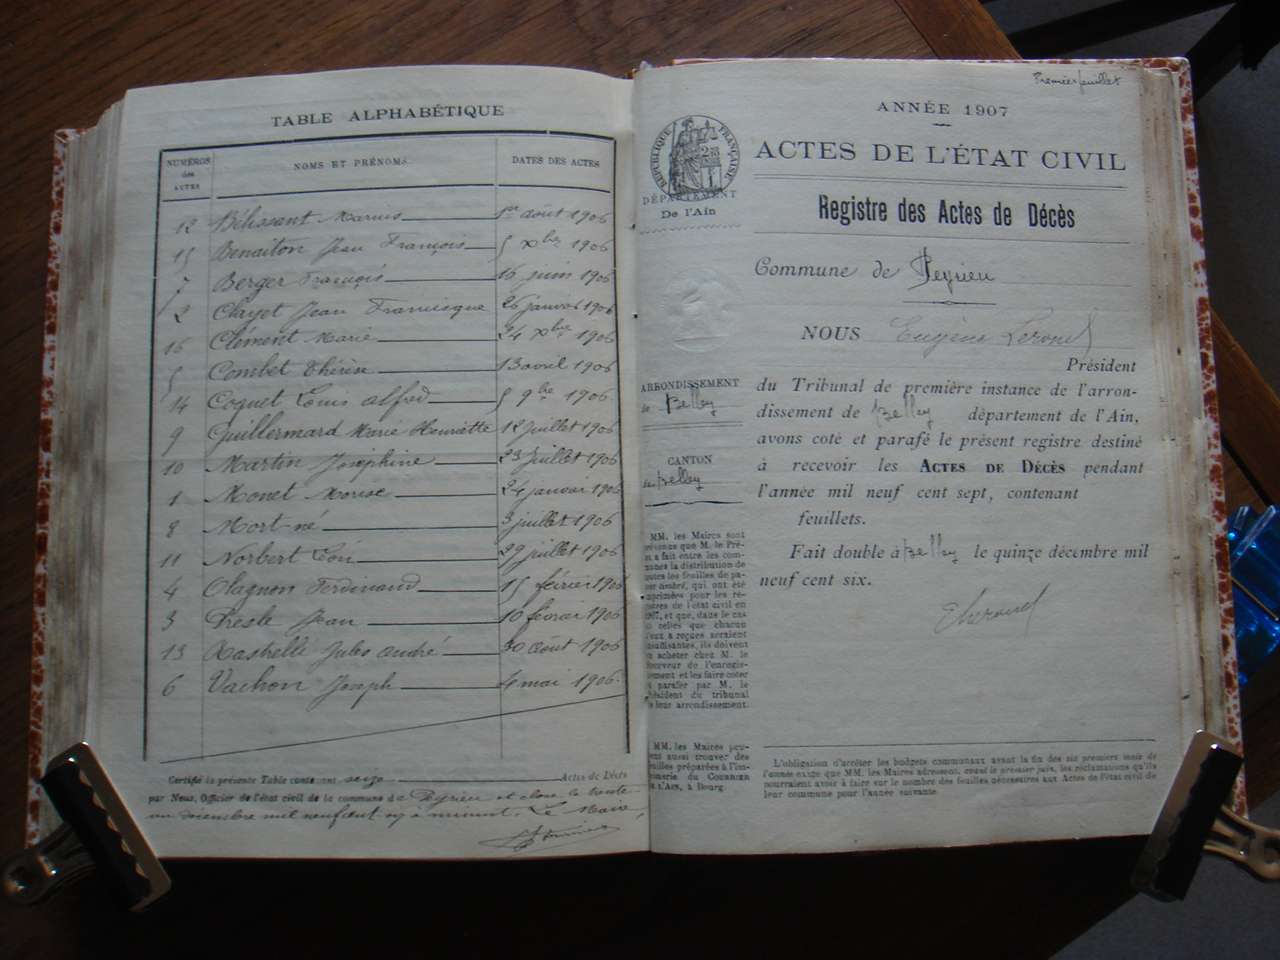 TABLE ALPHABÉTIQUE
NUMÉROS des ACTES NOMS ET PRÉNOMS. DATES DES ACTES
12 Bélissant Marius 1er août 1906
15 Benaiton Jean François 5 Xbre 1906
7 Berger François 16 juin 1906
2 Clayet Jean Francisque 26 janvier 1906
16 Clément Marie 24 Xbre 1906
5 Combet Thérèse 13 avril 1906
14 Coquet Louis Alfred 5 9bre 1906
9 Guillermard Marie Henriette 12 juillet 1906
10 Martin Joséphine 23 juillet 1906
1 Monet Morise 24 janvier 1906
8 Mort-né 3 juillet 1906
11 Norbert Léon 29 juillet 1906
4 Olagnon Ferdinand 15 février 1906
3 Presle Jean 10 février 1906
13 Rastrelli Jules André 30 août 1906
6 Vachon Joseph 4 mai 1906.
Certifié la présente Table contenant seize Actes de Décès
par Nous, Officier de l'état civil de la commune de Peyrieu et close le trente
un décembre mil neuf cent six à minuit. Le Maire,
Premier feuillet
ANNÉE 1907
ACTES DE L'ÉTAT CIVIL
Registre des Actes de Décès
Commune de Peyrieu
NOUS Eugène Lerond
Président
du Tribunal de première instance de l'arron-
dissement de Belley département de l'Ain,
avons coté et parafé le présent registre destiné
à recevoir les ACTES DE DÉCÈS pendant
l'année mil neuf cent sept, contenant
feuillets.
Fait double à Belley le quinze décembre mil
neuf cent six.
ELerond
RÉPUBLIQUE FRANÇAISE
DÉPARTEMENT
De l'Ain
ARRONDISSEMENT
de Belley
CANTON
de Belley
MM. les Maires sont
prévenus que M. le Pré-
et a fait entre les com-
munes la distribution de
toutes les feuilles de pa-
pier timbré, qui ont été
imprimées pour les re-
gistres de l'état civil en
1907, et que, dans le cas
où celles que chacun
d'eux a reçues seraient
insuffisantes, ils doivent
en acheter chez M. le
Receveur de l'enregis-
trement et les faire coter
et parafer par M. le
Président du tribunal
de leur arrondissement.
MM. les Maires peu-
vent aussi trouver des
feuilles préparées à l'im-
primerie du COURRIER
DE L'AIN, à Bourg.
L'obligation d'arrêter les budgets communaux avant la fin des six premiers mois de
l'année exige que MM. les Maires adressent, avant le premier juin, les réclamations qu'ils
pourraient avoir à faire sur le nombre des feuilles nécessaires aux Actes de l'état civil de
leur commune pour l'année suivante.